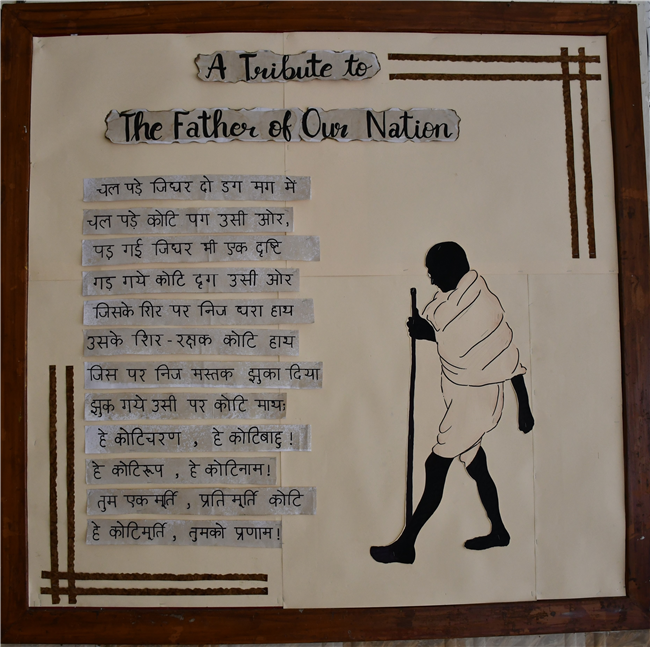 A Tribute to
The Father of Our Nation
चल पड़े जिधर दो डग मग में
चल पड़े कोटि पग उसी ओर,
पड़ गई जिधर भी एक दृष्टि
गड़ गये कोटि दृग उसी ओर
जिसके शिर पर निज धरा हाथ
उसके शिर - रक्षक कोटि हाथ
जिस पर निज मस्तक झुका दिया
झुक गये उसी पर कोटि माथः
हे कोटिचरण , हे कोटिबाहु !
हे कोटिरूप , हे कोटिनाम !
तुम एक मूर्ति , प्रति मूर्ति कोटि
हे कोटिमूर्ति , तुमको प्रणाम !